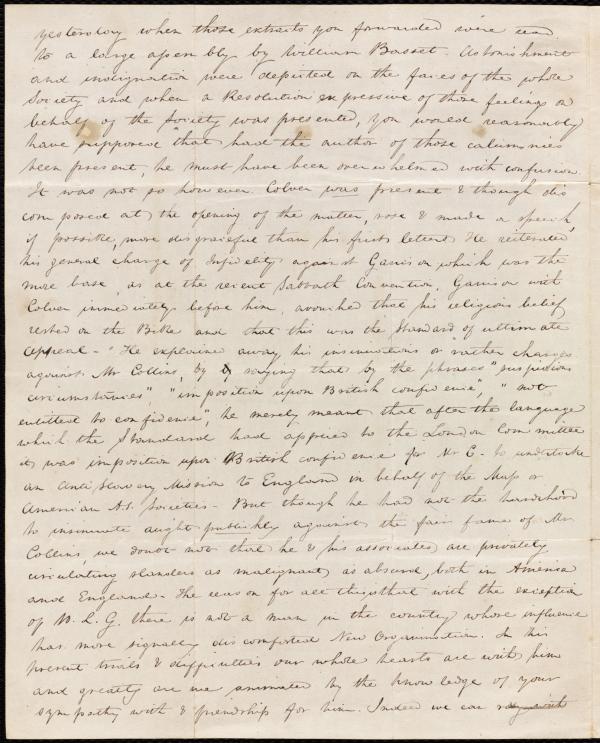 yesterday when those extracts you forwarded were read
to a large assembly by William Basset. Astonishment
and indignation were depicted on the faces of the whole
Society and when a Resolution expressive of those feelings on
behalf of the Society was presented, you would reasonably
have supposed that had the author of those calumnies
been present, he must have been overwhelmed with confusion.
It was not so however. Colver was present & though dis
composed at the opening of the matter, rose & made a speech,
if possible, more disgraceful than his first letters. He reiterated
his general charge of Infidelity against Garrison which was the
more base, as at the recent Sabbath Convention, Garrison with
Colver immediately before him, avouched that his religious belief
rested on the Bible and that this was the standard of ultimate
appeal - "He explained away his insinuations or rather charges
against Mr Collins, by saying that by the phrases "suspicious
circumstances", "imposition upon British confidence", "not
entitled to confidence", he merely meant that after the language
which the Standard had applied to the London Committee
it was imposition upon British confidence for Mr C. to undertake
an Anti Slavery Mission to England in behalf of the Mass or
American A.S. Societies - But though he had not the hardihood
to insinuate aught publickly against the fair fame of Mr
Collins, we doubt not that he & his associates are privately
circulating slanders as malignant as absurd, both in America
and England - The reason for all this, that with the exception
of W. L. G. there is not a man in the country whose influence
has more signally discomforted New Organization. In his
present trials & difficulties our whole hearts are with him
and greatly are we animated by the knowledge of your
sympathy with & friendship for him. Indeed we can